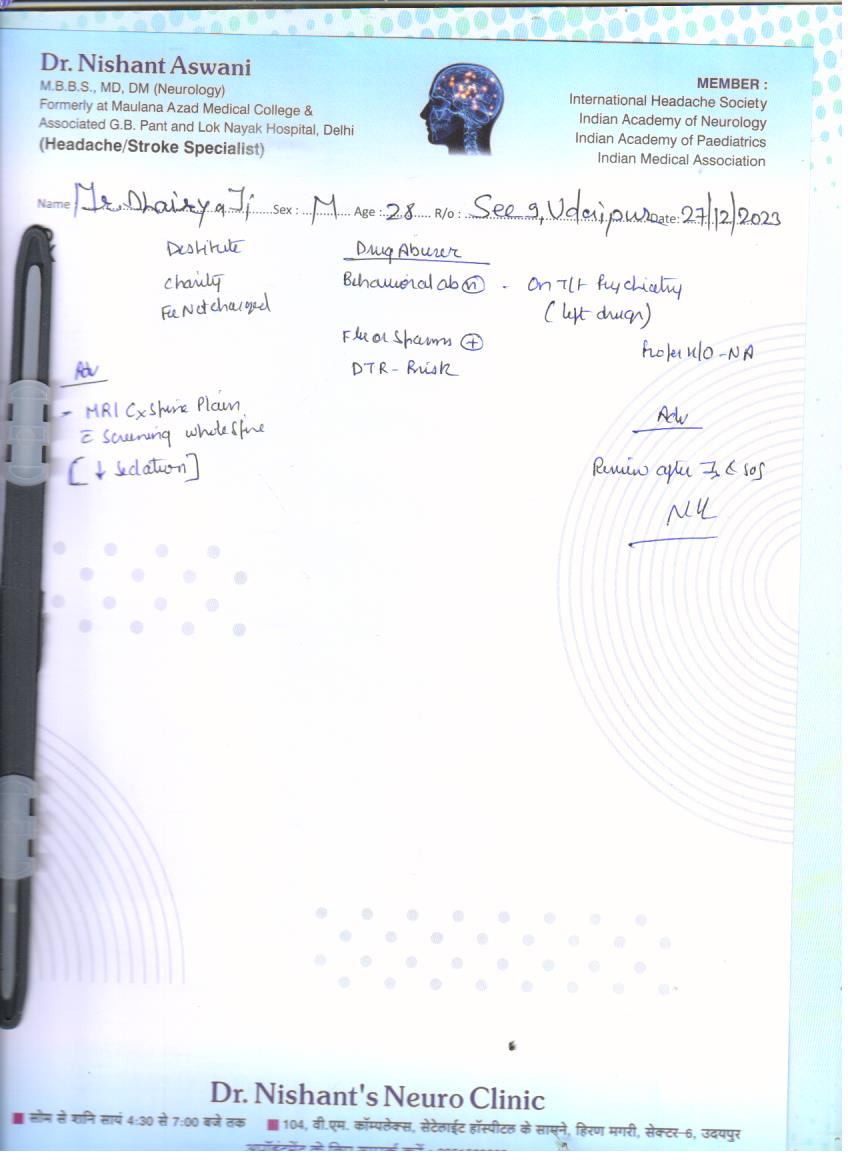 Dr. Nishant Aswani
M.B.B.S., MD, DM (Neurology)
Formerly at Maulana Azad Medical College &
Associated G.B. Pant and Lok Nayak Hospital, Delhi
(Headache/Stroke Specialist)
MEMBER :
International Headache Society
Indian Academy of Neurology
Indian Academy of Paediatrics
Indian Medical Association
Name Mr. Dhairya Ji Sex : M Age : 28 R/o : Sec 9, Udaipur Date: 27/12/2023
Destitute
Charity
Fee Not charged
Drug Abuser
Behavioral ab (n) - On T/t Psychiatry
(left drugs)
Flexor Spasms (+)
DTR - Brisk
Proper H/O - NA
Adv
- MRI Cx Spine Plain
c̄ Screening whole Spine
[↓ Sedation]
Adv
Review after & SOS
Dr. Nishant's Neuro Clinic
सोम से शनि सायं 4:30 से 7:00 बजे तक
104, वी.एम. कॉम्पलेक्स, सेटेलाईट हॉस्पीटल के सामने, हिरण मगरी, सेक्टर-6, उदयपुर